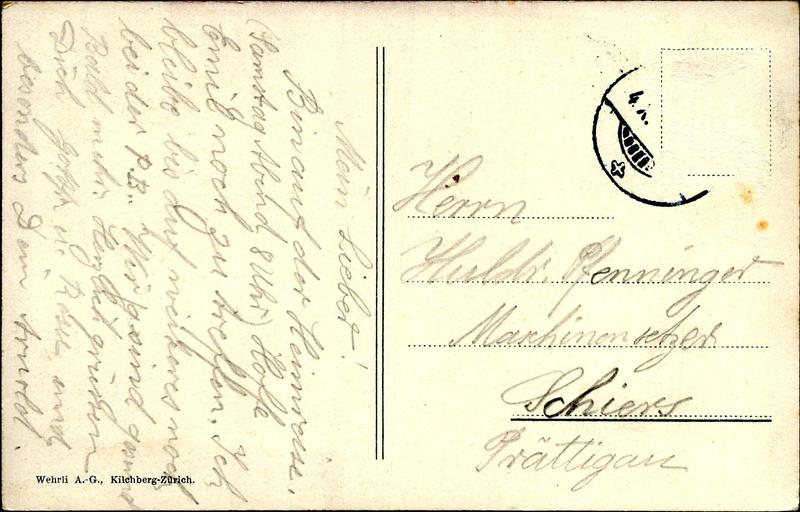 Mein Lieber!
Bin auf der Heimreise.
(Samstag Abend 8 Uhr) Hoffe
Emil noch zu treffen. Ich
bleibe bis auf weiteres noch
bei der P.B. Wir sind gesund
Bald mehr. Herzlich grüssen
Dich Gotth. u. und
besonders Dein Arnold.
4. X.
Herrn
Huldr. Pfenninger
Maschinensetzer
Schiers
Prättigau
Wehrli A.-G., Kilchberg-Zürich.